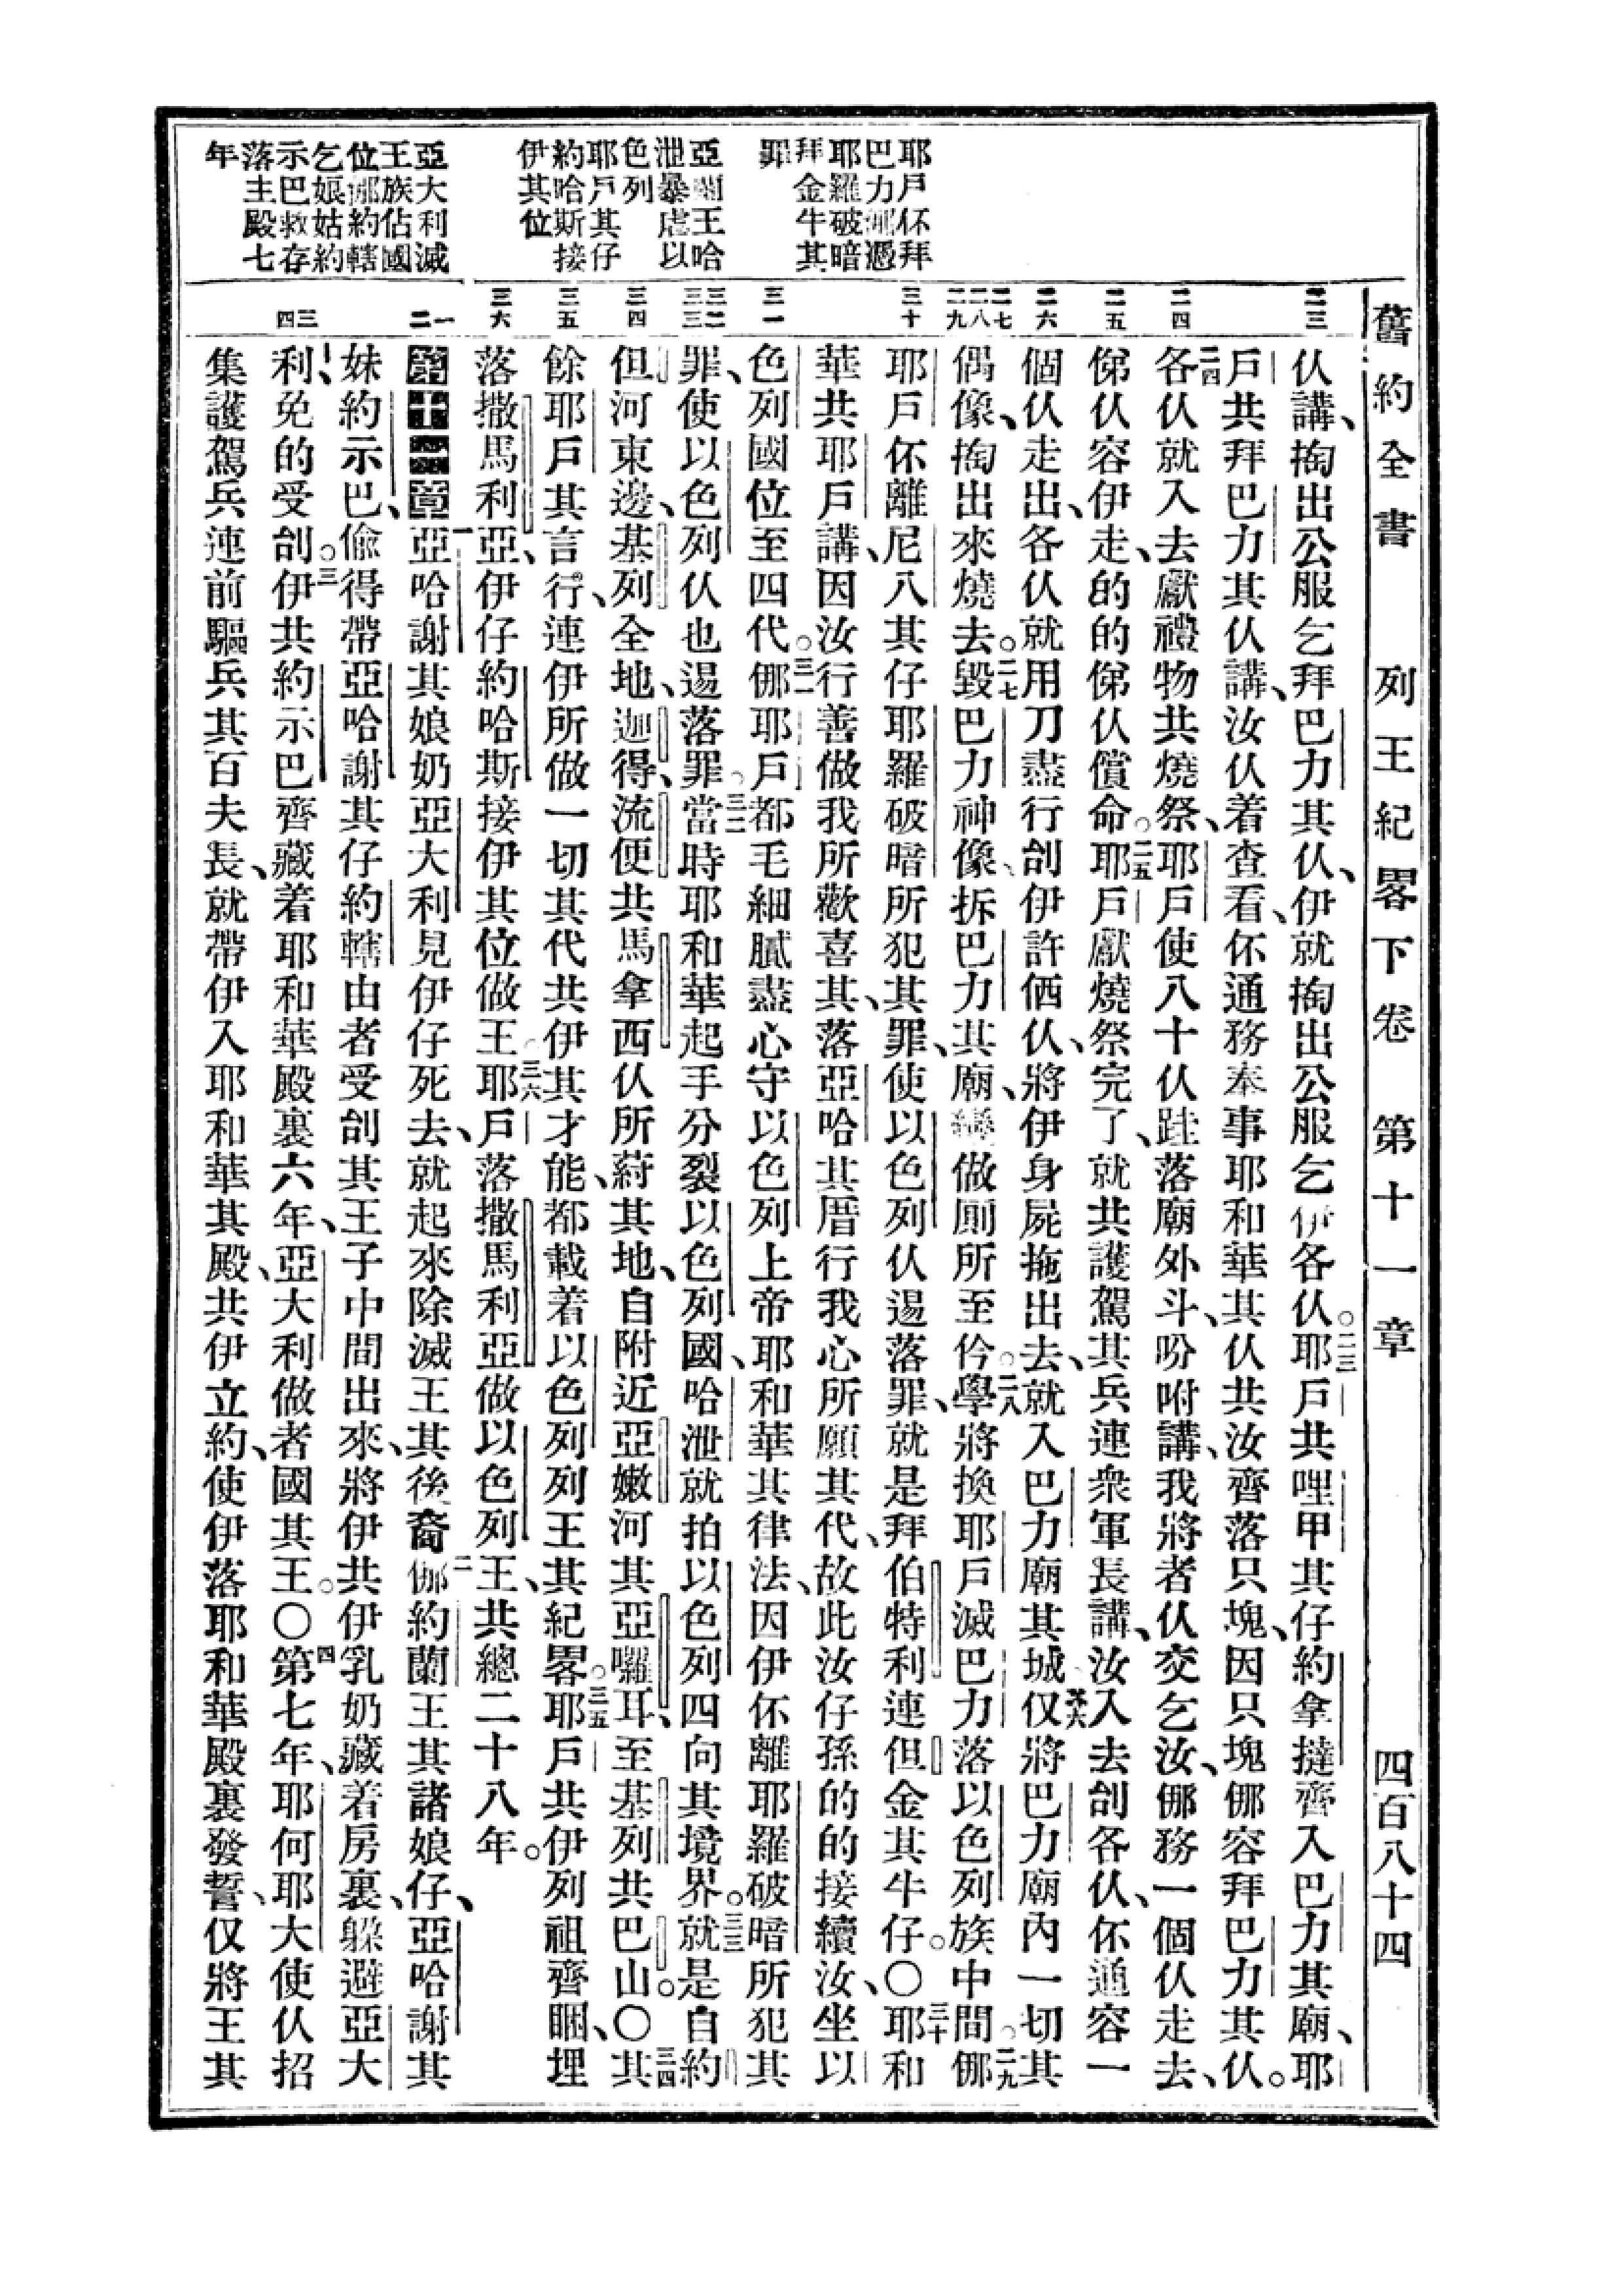 舊約全書 列王紀畧下卷 第十一章 四百八十四
耶戶伓拜
巴力㑚憑
耶羅破暗
拜金牛其
罪
亞蘭王哈
泄暴虐以
色列
耶戶其仔
約哈斯接
伊其位
亞大利滅
王族佔國
位㑚約轄
乞娘姑約
示巴救存
落主殿七
年
二三
二四
二五
二六
二七
二八
二九
三十
三一
三二
三三
三四
三五
三六
一
二
三
四
仈講、掏出公服乞拜巴力其仈、伊就掏出公服乞伊各仈。二三耶戶共哩甲其仔約拿撻齊入巴力其廟、耶
戶共拜巴力其仈講、汝仈着查看、伓通務奉事耶和華其仈共汝齊落只塊、因只塊㑚容拜巴力其仈。
二四各仈就入去獻禮物共燒祭、耶戶使八十仈跬落廟外斗、吩咐講、我將者仈交乞汝、㑚務一個仈走去、
俤仈容伊走、的的俤仈償命。二五耶戶獻燒祭完了、就共護駕其兵連衆軍長講、汝入去刣各仈、伓通容一
個仈走出、各仈就用刀盡行刣伊許㒰仈、將伊身屍拖出去、就入巴力廟其城、二六仅將巴力廟內一切其
偶像、掏出來燒去。二七毀巴力神像、拆巴力其廟、變做廁所至仱。二八學將換耶戶滅巴力落以色列族中間。二九㑚
耶戶伓離尼八其仔耶羅破暗所犯其罪、使以色列仈逿落罪、就是拜伯特利連但金其牛仔。〇三十耶和
華共耶戶講、因汝行善做我所歡喜其、落亞哈其厝行我心所願其代、故此汝仔孫的的接續汝、坐以
色列國位至四代。三一㑚耶戶都毛細膩盡心守以色列上帝耶和華其律法、因伊伓離耶羅破暗所犯其
罪、使以色列仈也逿落罪。三二當時耶和華起手分裂以色列國、哈泄就拍以色列四向其境界。三三就是自約
但河東邊、基列全地、迦得、流便共馬拿西仈所葤其地、自附近亞嫩河其亞囉耳、至基列共巴山。〇三四其
餘耶戶其言行、連伊所做一切其代共伊其才能、都載着以色列列王其紀畧。三五耶戶共伊列祖齊睏、埋
落撒馬利亞、伊仔約哈斯接伊其位做王。三六耶戶落撒馬利亞做以色列王、共總二十八年。
第十一章一亞哈謝其娘奶亞大利見伊仔死去、就起來除滅王其後裔。二㑚約蘭王其諸娘仔、亞哈謝其
妹約示巴、偸得帶亞哈謝其仔約轄由者受刣其王子中間出來、將伊共伊乳奶藏着房裏、躱避亞大
利、免的受刣。三伊共約示巴齊藏着耶和華殿裏六年、亞大利做者國其王。〇四第七年、耶何耶大使仈招
集護駕兵連前驅兵其百夫長、就帶伊入耶和華其殿、共伊立約、使伊落耶和華殿裏發誓、仅將王其